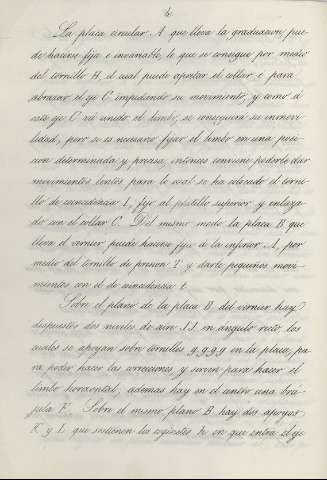 6
La placa circular A que lleva la graduacion, pue-
de hacerse fija e invariable, lo que se consigue por medio
del tornillo H, el cual puede apretar el collar e para
abrazar el eje C impidiendo su movimiento, y como á
este eje C va unido el limbo, se conseguirá su inmovi-
lidad, pero si es necesario fijar el limbo en una posi-
cion determinada y precisa, entonces conviene poderle dar
movimientos lentos para lo cual se ha colocado el torni-
llo de coincidencia I, fijo al platillo superior y enlaza-
do con el collar C. Del mismo modo la placa B que
lleva el vernier puede hacerse fija á la inferior A, por
medio del tornillo de presion T y darle pequeños movi-
mientos con el de coincidencia t.
Sobre el plano de la placa B, del vernier hay
dispuestos dos niveles de aire J.J. en ángulo recto, los
cuales se apoyan sobre tornillos g,g,g,g en la placa, pa-
ra poder hacer las correcciones, y sirven para hacer el
limbo horizontal, ademas hay en el centro una brú-
jula F. Sobre el mismo plano B hay dos apoyos
K y L que sostienen los cojinetes h en que entra el eje